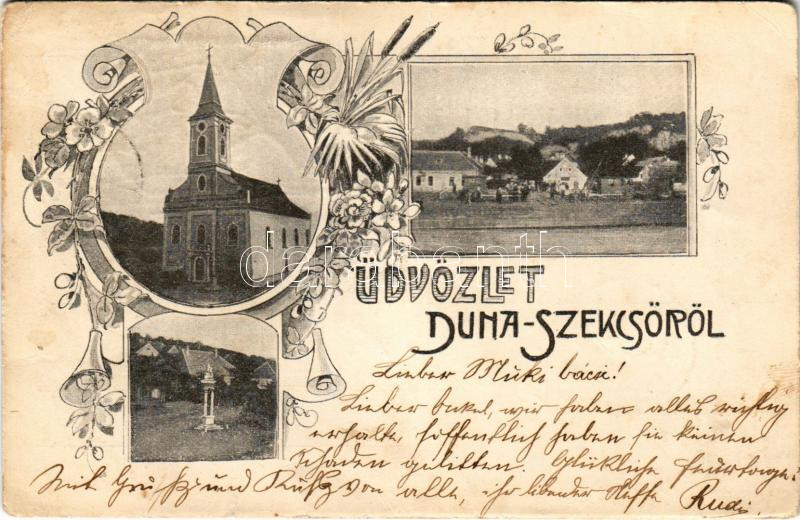 ÜDVÖZLET
DUNA-SZEKCSÖRÖL
darabanth
Lieber Muki bácsi!
Lieber Onkel, wir haben alles richtig
erhalte, höffentlich haben Sie keinen
Schaden gelitten. Glükliche Feuertage.
Mit Gruß und Kuß von alle, ihr libender Neffe Rudi.